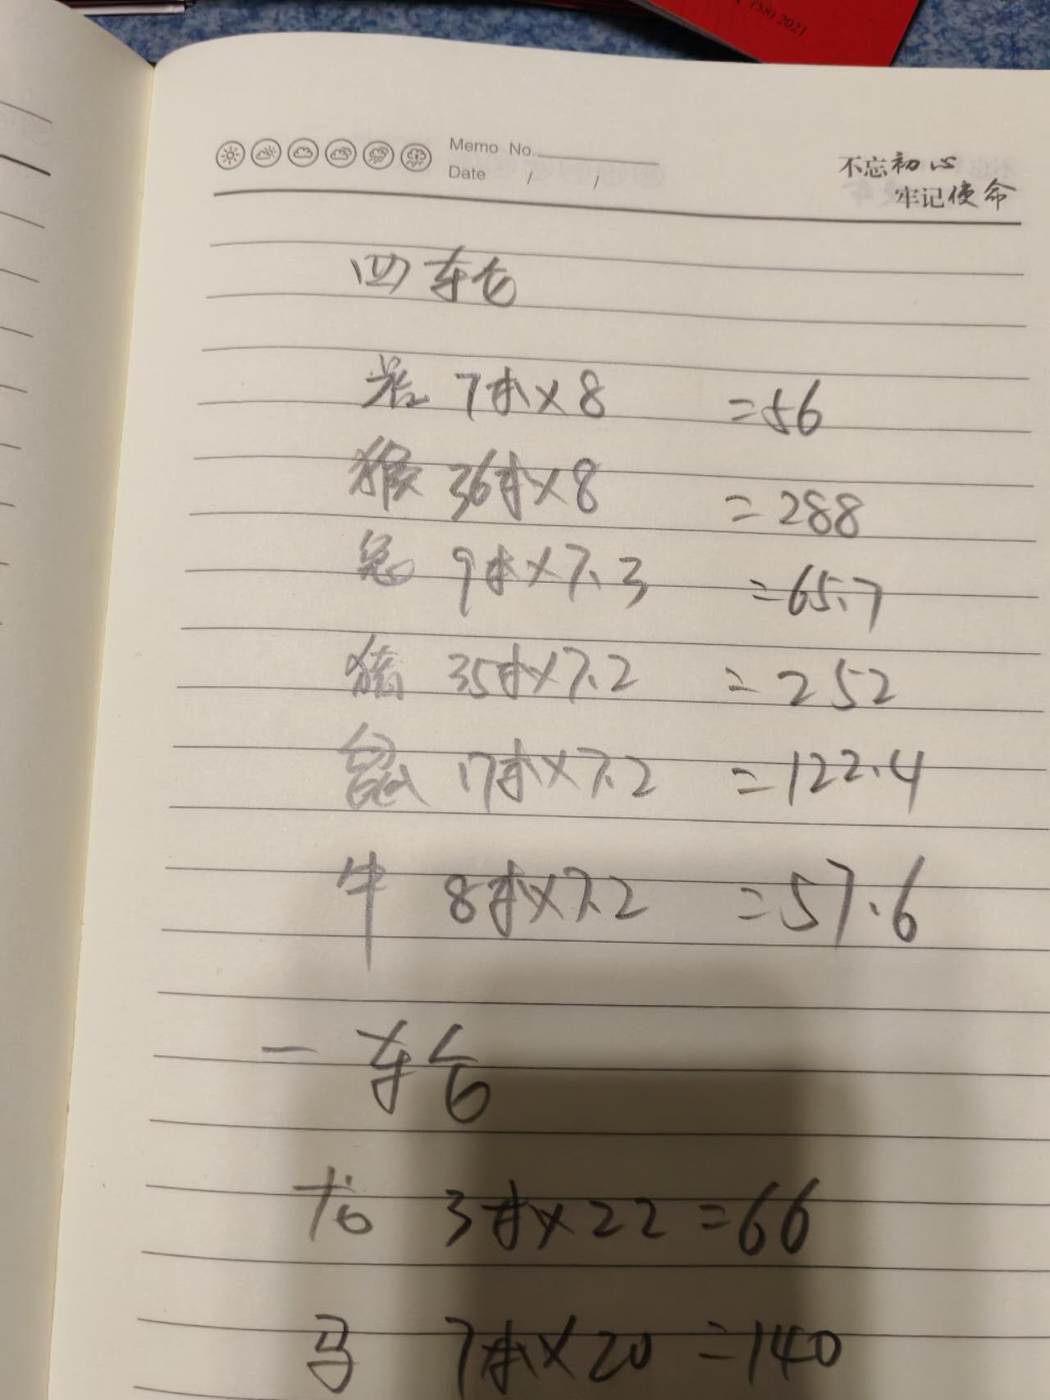 (58) 2021
Memo No.
Date / /
不忘初心
牢记使命
四车仓
羊 7本×8 =56
猴 36本×8 =288
兔 9本×7.3 =65.7
猪 35本×7.2 =252
鼠 17本×7.2 =122.4
牛 8本×7.2 =57.6
一车仓
龙 3本×22 =66
马 7本×20 =140